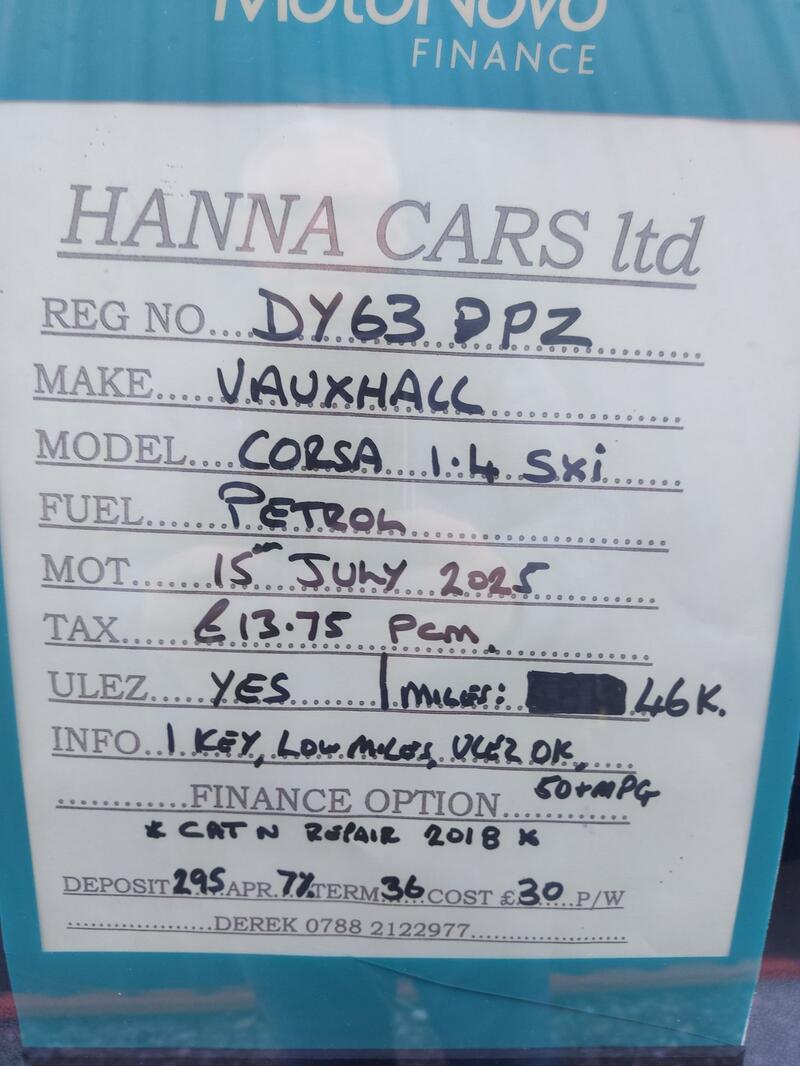 MotoNovo
FINANCE
HANNA CARS ltd
REG NO....DY63 DPZ
MAKE.....VAUXHALL
MODEL....CORSA 1.4 SXi
FUEL......PETROL
MOT.......15TH JULY 2025
TAX......£13.75 PCM.
ULEZ.....YES | MILES: 46K.
INFO..1 KEY, LOW MILES, ULEZ OK,
50+MPG
............FINANCE OPTION
* CAT N REPAIR 2018 *
DEPOSIT 295 APR. 7% TERM 36 COST £30 P/W
DEREK 0788 2122977